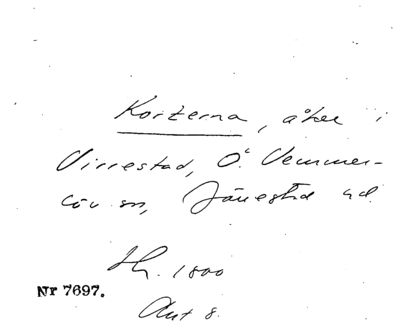 Korterna, åker i
Virrestad, Ö. Vemmer-
löv sn, Järrestad hd.
Hh. 1800
Nr 7697.
Akt 8.